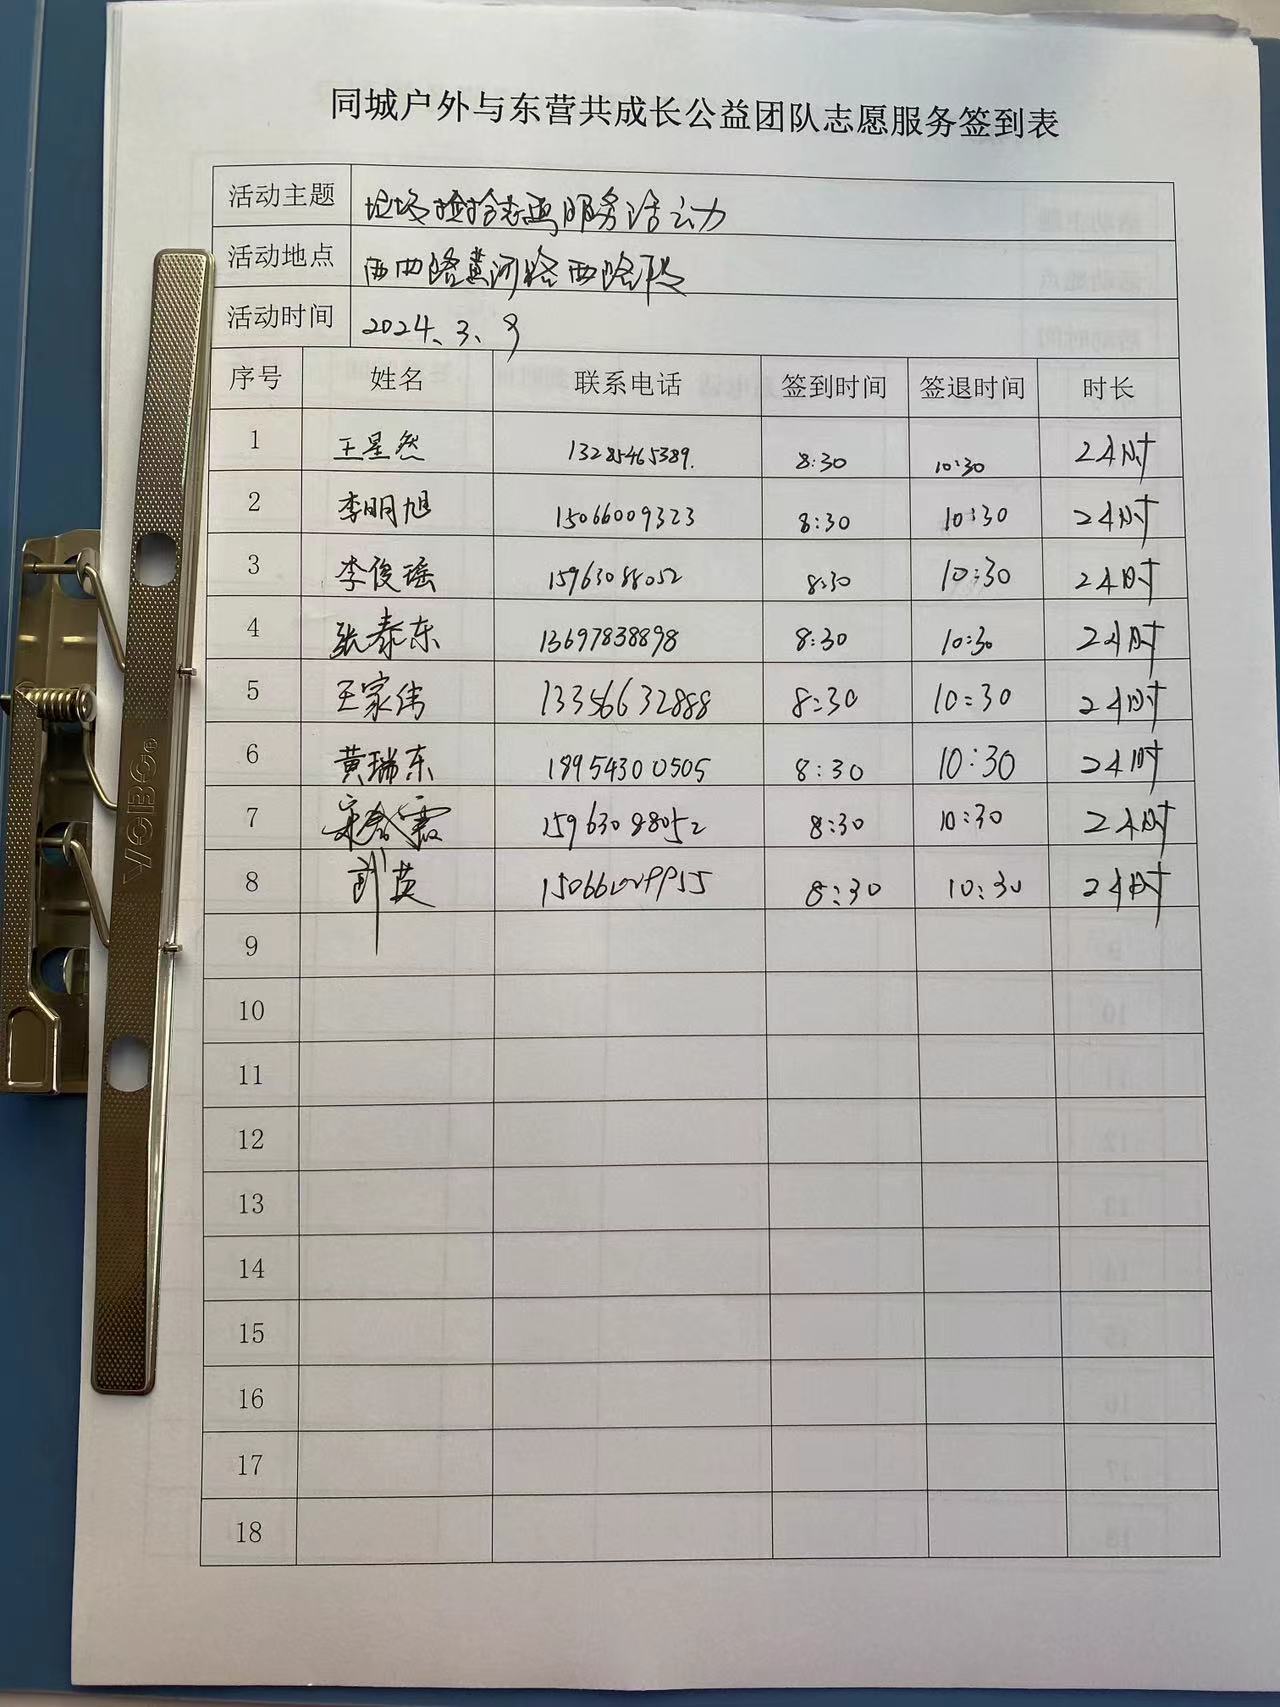 同城户外与东营共成长公益团队志愿服务签到表
活动主题 垃圾捡拾志愿服务活动
活动地点 西四路黄河路西路段
活动时间 2024.3.9
序号 姓名 联系电话 签到时间 签退时间 时长
1 王星然 13285465389. 8:30 10:30 2小时
2 李明旭 15066009323 8:30 10:30 2小时
3 李俊瑶 15963088052 8:30 10:30 2小时
4 张泰东 13697838898 8:30 10:30 2小时
5 王家伟 13356632888 8:30 10:30 2小时
6 黄瑞东 18954300505 8:30 10:30 2小时
7 15963088052 8:30 10:30 2小时
8 刘英 8:30 10:30 2小时
9
10
11
12
13
14
15
16
17
18
VOBG